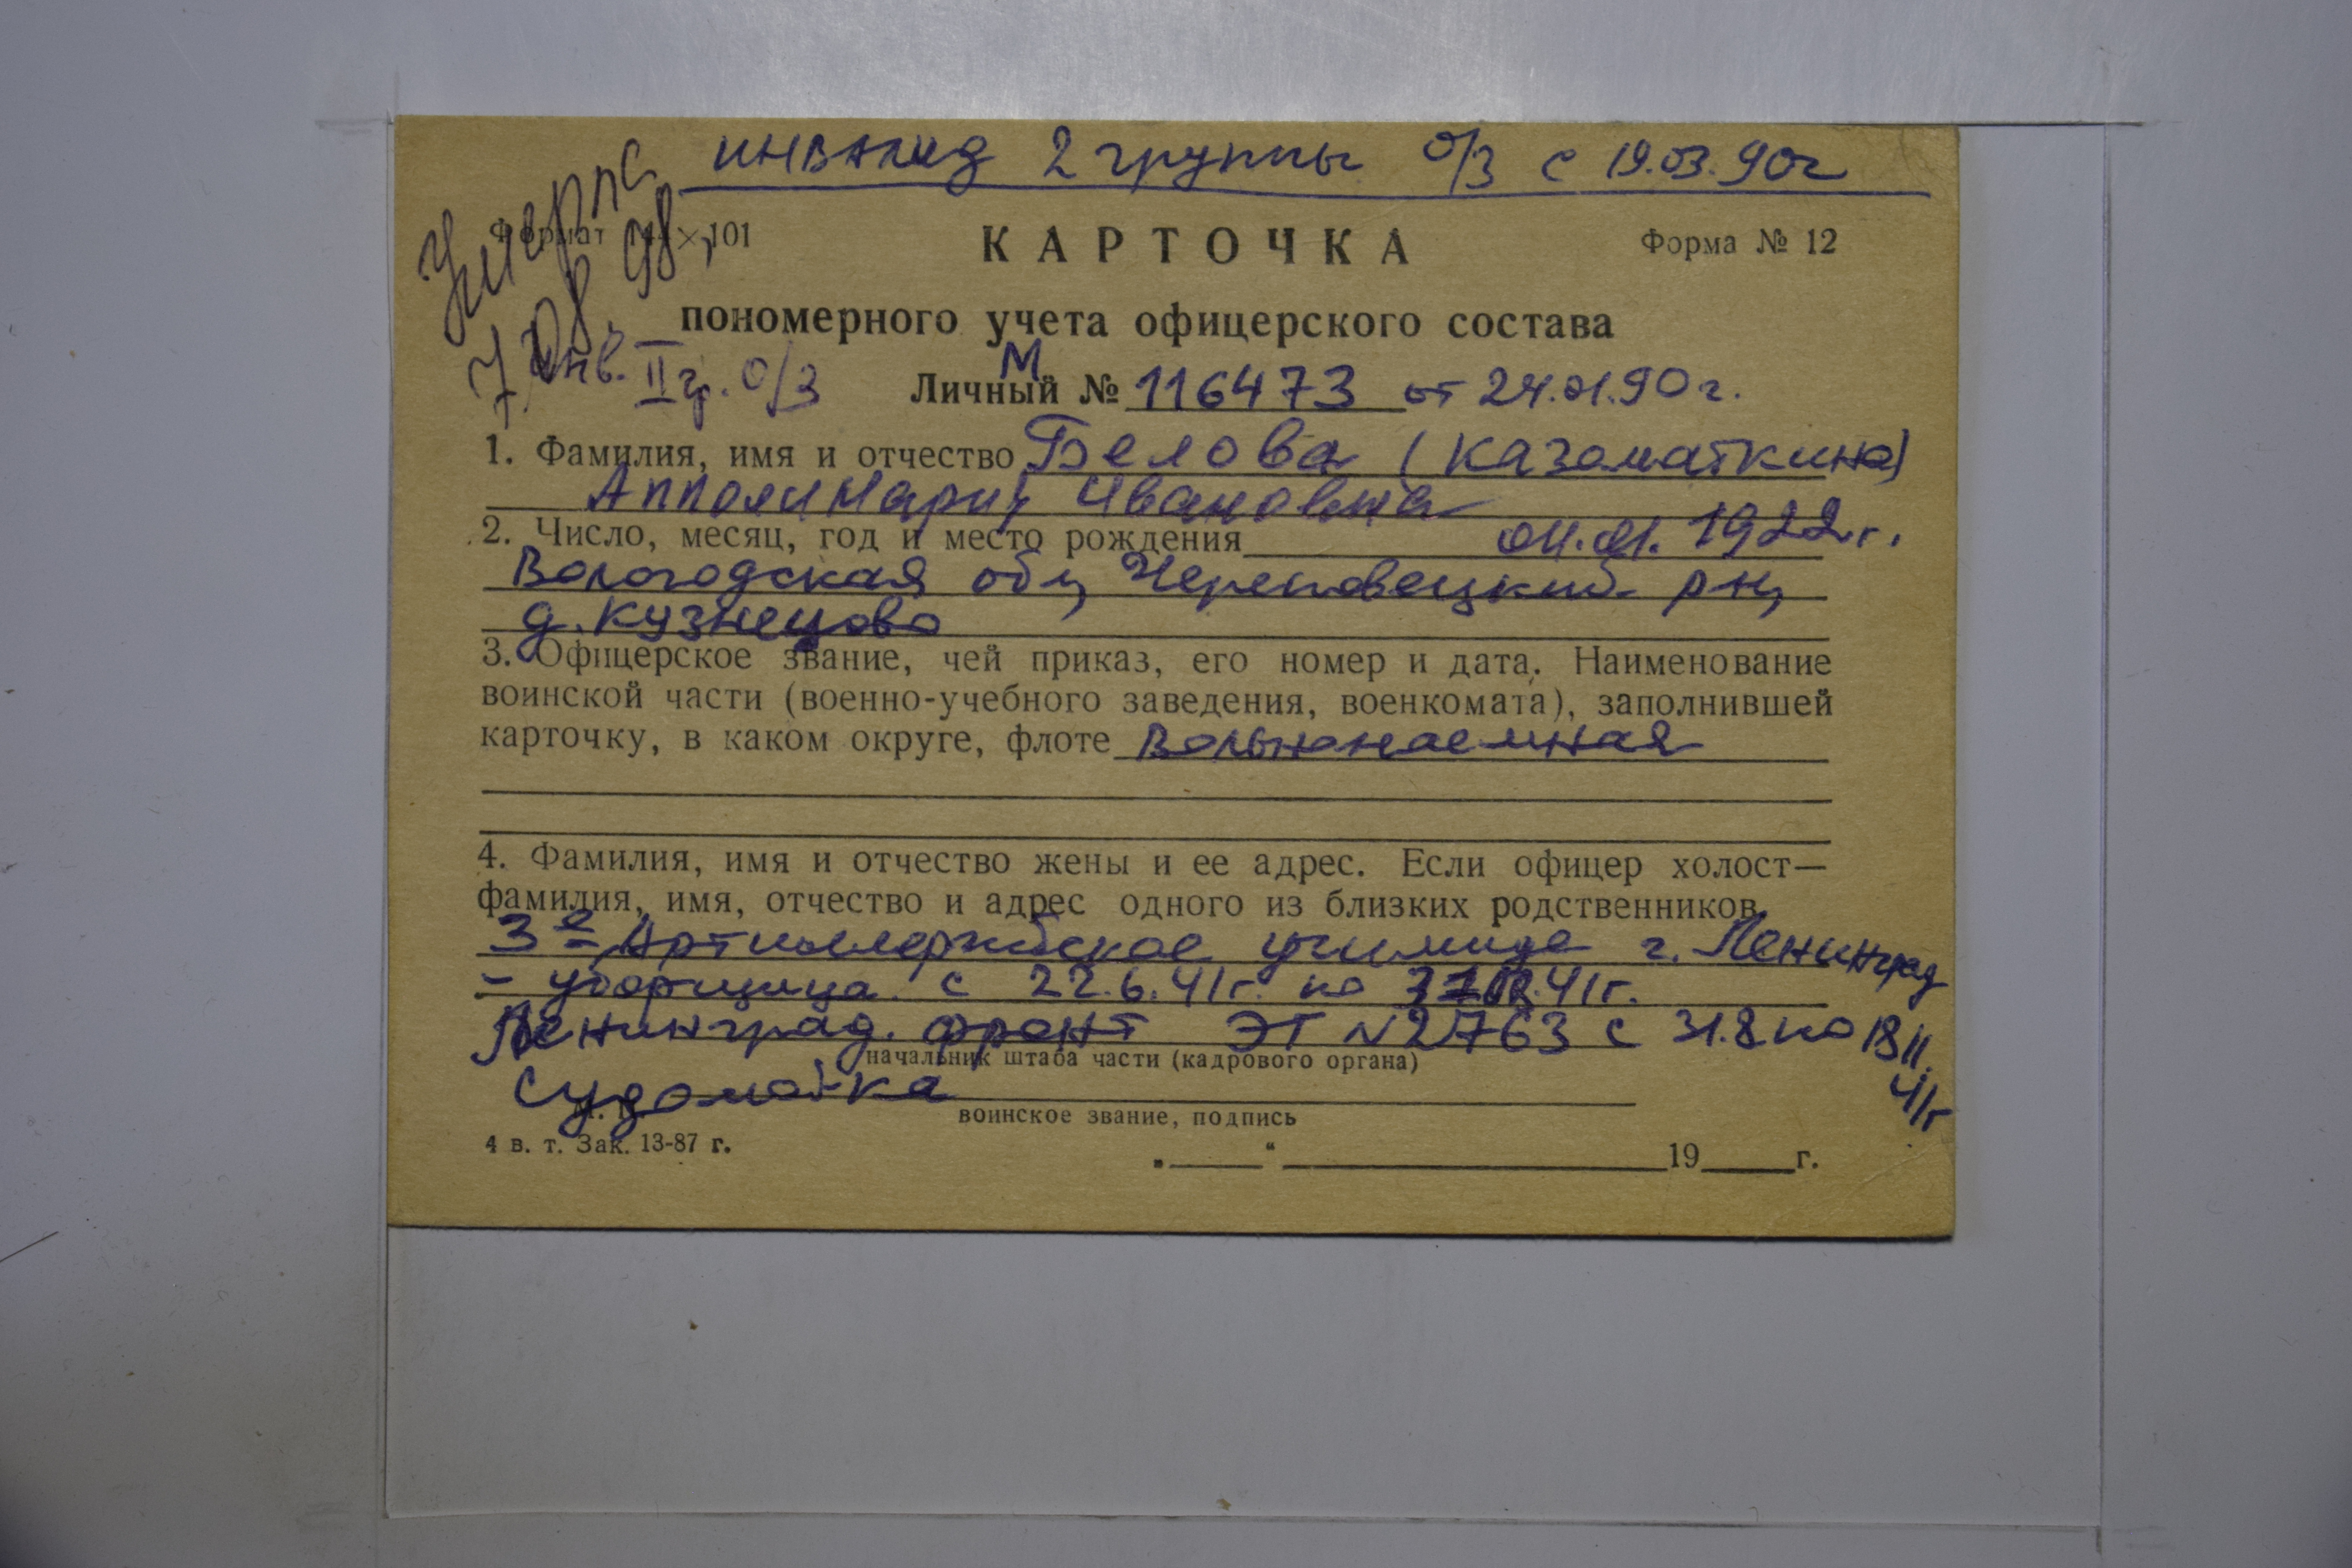 инвалид 2 группы о/з с 19.03.90г
Умерла
7.08.98г
Формат 144×101
КАРТОЧКА
Форма № 12
пономерного учета офицерского состава
Инв. II гр. о/з
Личный № М 116473 от 24.01.90г.
1. Фамилия, имя и отчество Белова (Казаматкина)
Ивановна
2. Число, месяц, год и место рождения 04.01.1922г.
Вологодская обл, Череповецкий р-н,
д. Кузнецово
3. Офицерское звание, чей приказ, его номер и дата. Наименование
воинской части (военно-учебного заведения, военкомата), заполнившей
карточку, в каком округе, флоте Вольнонаемная
4. Фамилия, имя и отчество жены и ее адрес. Если офицер холост—
фамилия, имя, отчество и адрес одного из близких родственников
3е Артиллерийское училище г. Ленинград
- уборщица с 22.6.41г. по
Ленинград. фронт ЭГ №2763 с 31.8 по 18 11.
41г
начальник штаба части (кадрового органа)
Судомойка
М. П.
воинское звание, подпись
4 в. т. Зак. 13-87 г.
„ “ 19 г.